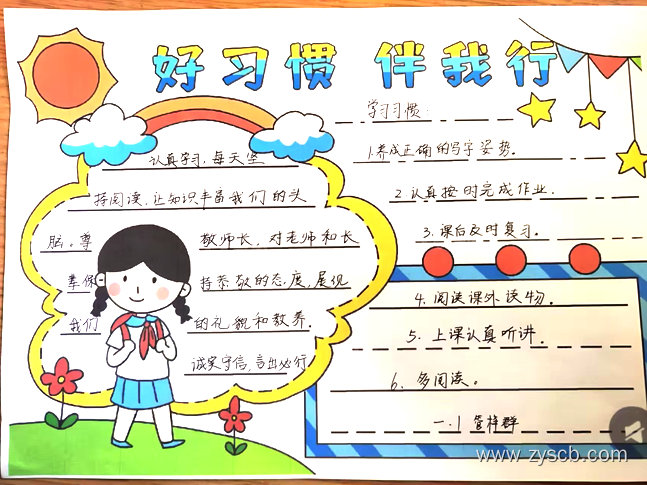 好习惯 伴我行
认真学习,每天坚
持阅读,让知识丰富我们的头
脑。尊敬师长,对老师和长
辈保持恭敬的态度,展现
我们的礼貌和教养.
诚实守信,言出必行
学习习惯:
1.养成正确的写字姿势.
2.认真按时完成作业.
3.课后及时复习.
4.阅读课外读物.
5.上课认真听讲.
6.多阅读。
www.zyscb.com